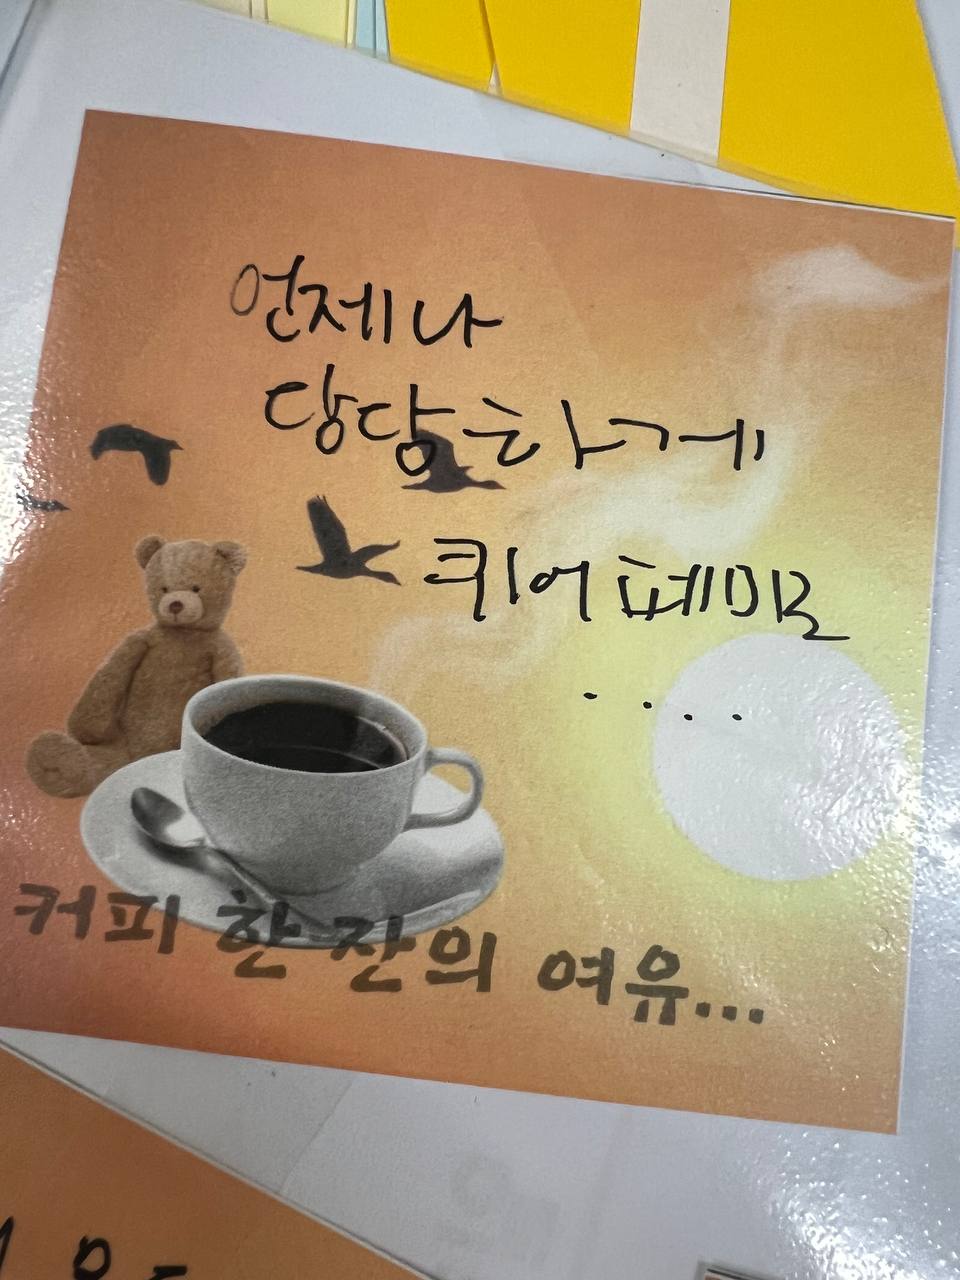 언제나
당당하게
퀴어 페미로
....
커피 한 잔의 여유...